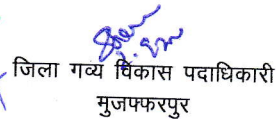 जिला गव्य विकास पदाधिकारी
मुजफ्फरपुर